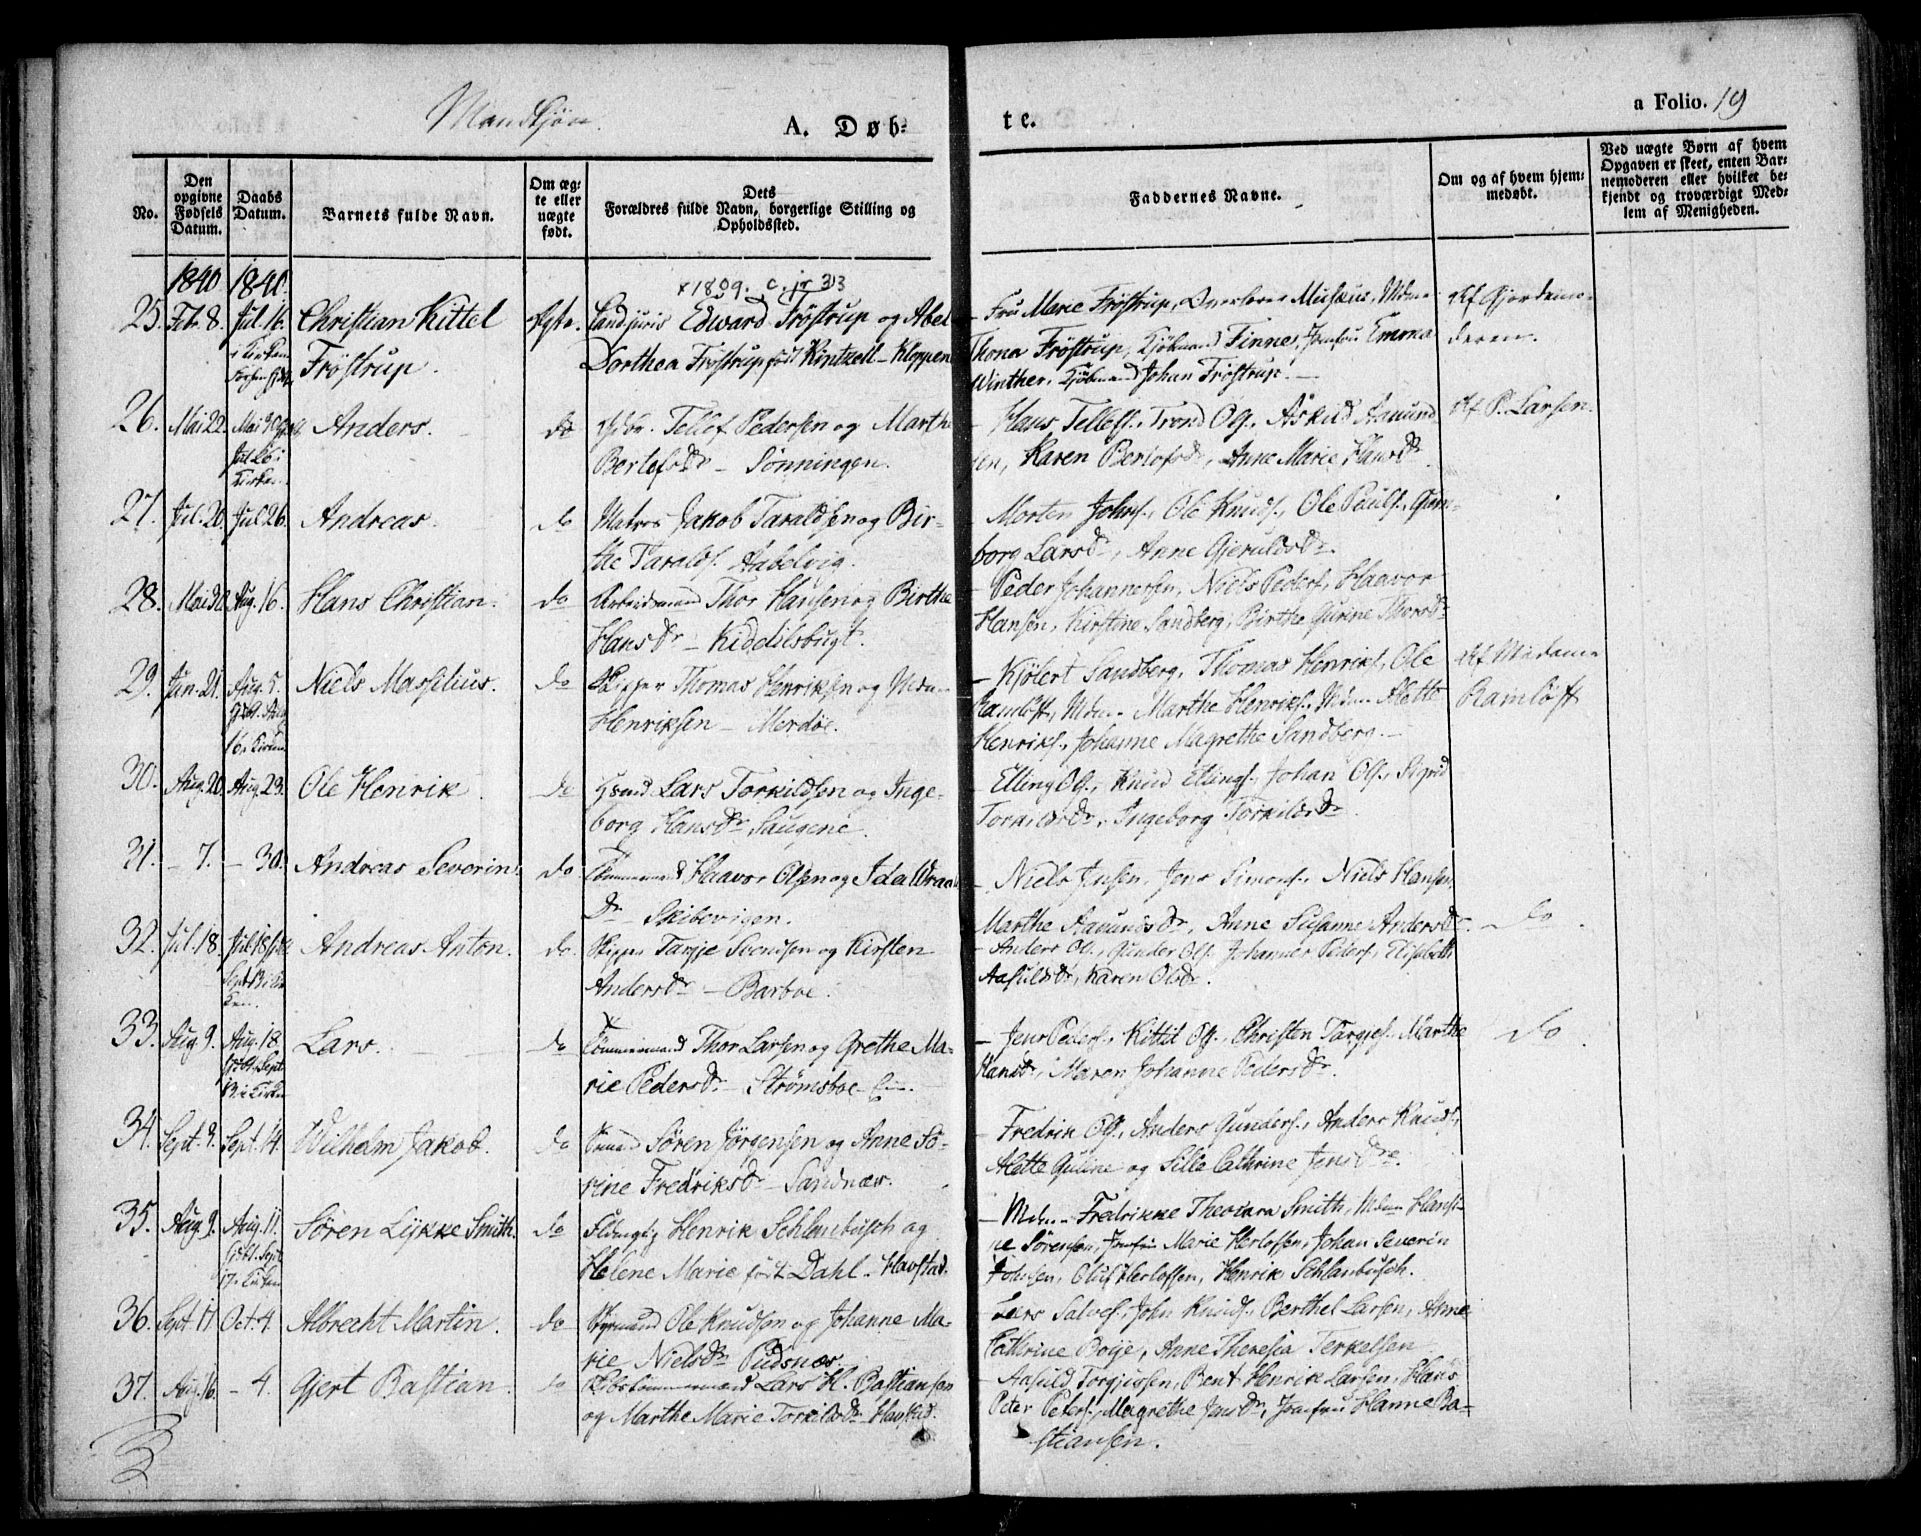 Mandkjøn.
A. Døb-
te.
a Folio. 19
No.
Den opgivne Fødsels Datum.
Daabs Datum.
Barnets fulde Navn.
Om ægte eller uægte født.
Dets Forældres fulde Navn, borgerlige Stilling og Opholdssted.
Faddernes Navne.
Om og af hvem hjemmedøbt.
Ved uægte Børn af hvem Opgaven er skeet, enten Barnemoderen eller hvilket bekjendt og troværdigt Medlem af Menigheden.
1840 1840.
x 1809. c. jr 33
25. Feb. 8. Jul. 16. Christian Kittel Ægte. Cand juris Edward Frøstrup og Abel — Fru Marie Frøstrup, Muskus, Mdm Af Gjordemo-
Frøstrup. Dorthea Frøstrup født Kintzell - Kloppen Thona Frøstrup, Kjøbmand Finne, Jomfru Emma deren.
Winther, Kjøbmand Johan Frøstrup. —
26. Mai 22. Mai 30 Anders. do Tellef Pedersen og Marthe — Hans Tellefs., Trond Ols., Askild Aanund Af P. Larsen.
Kirken Bertofsdr — Sønningen. sen, Karen Bertofsdr, Anne Marie Hansdr
27. Jul. 20. Jul. 26. Andreas. do Matros Jakob Taraldsen og Bir- — Morten Johns., Ole Knuds., Ole Pauls., Gun-
the Taralds. Habelvig. borg Larsdr, Anne Gjeruldsdr.
28. Mai 30. Aug. 16. Hans Christian. do Arbeidsmand Thor Hansen og Birthe — Peder Johannessen, Niels Peders., Haavor
Hansdr — Kiddilsbugt. Hansen, Kirstine Sandberg, Birthe Gurine Thorsdr
29. Jun. 21. Aug. 5. Niels Massilius. do Skipper Thomas Henriksen og Mdm — Kjølert Sandberg, Thomas Henriks., Ole Af Madame
16 i Kirken Henriksen — Merdøe. Ramløft, Mdm Marthe Henriks., Mdm Alette Ramløft
Henriks., Johanne Magrethe Sandberg. —
30. Aug. 20. Aug. 23. Ole Henrik. do Lars Torkildsen og Inge- — Elling Ols., Knud Ellings., Johan Ols., Sigrid
borg Hansdr Saugene. Torkildsdr, Ingeborg Torkildsdr
31. — 7. — 30. Andreas Severin. do Tømmermand Haavor Olsen og Ida Wraal — Niels Jensen, Jens Simons., Niels Hansen,
Dr — Skibevigen. Marthe Aanundsdr, Anne Susanne Andersdr
32. Jul. 18. Jul. 18 Andreas Anton. do. Skipper Targje Svendsen og Kirsten — Anders Ols., Gunder Ols., Johannes Peders., Elisabeth do.
Sept. 13 i Kirken. Andersdr — Barboe. Aasuldsdr, Karen Olsdr.
33. Aug. 9. Aug. 18. Lars. do Tømmermand Thor Larsen og Grethe Ma- — Jens Peders., Kittil Ols., Christen Targjes., Marthe do.
13 i Kirken rie Pedersdr — Strømsboe Hansdr, Maren Johanne Pedersdr.
34. Sept. 9. Sept. 14. Wilhelm Jakob. do Søren Jørgensen og Anne So- — Fredrik Ols., Anders Gunders., Anders Knuds.,
rine Fredriksdr — Sandnæs. Alette Guline og Sille Cathrine Jensdre.
35. Aug. 9. Aug. 11. Søren Lykke Smith. do Henrik Schlanbusch og — Mdm Fredrikke Theodora Smith, Mdm Hansi-
17 i Kirken Helene Marie født Dahl - Havstad. ne Sørensen, Jomfru Marie Herlofsen, Johan Severin
Johnsen, Oluf Herlofsen, Henrik Schlanbusch.
36. Sept. 17 Oct. 4. Albrecht Martin. do Styrmand Ole Knudsen og Johanne Ma- Lars Salves., John Knuds., Berthel Larsen, Anne
rie Nielsdr Pudsnæs. Cathrine Boye, Anne Theresia Terkelsen
37. Aug. 16. — 4. Gjert Bastian. do Skibstømmermand Lars H. Bastiansen — Aasuld Torgjussen, Bent Henrik Larsen, Hans
og Marthe Marie Torkildsdr Havstad. Peter Peters., Magrethe Jensdr, Jomfru Hanne Ba-
stiansen.